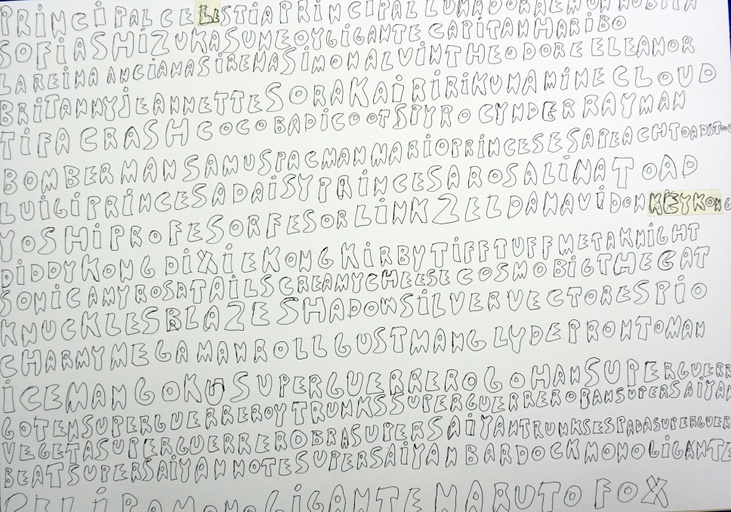 PRINCIPALCELESTIAPRINCIPALLUNADORAEMONNOBITA
SOFIASHIZUKASUNEOYGIGANTECAPITANHARIBO
LAREINAANCIANASIRENASIMONALVINTHEODOREELEANOR
BRITANNYJEANNETTESORAKAIRIRIKUNAMINECLOUD
TIFACRASHCOCOBADICOOTSPYROCYNDERRAYMAN
BOMBERMANSAMUSPACMANMARIOPRINCESESAPEACHTOADSTOO
LUIGIPRINCESADAISYPRINCESAROSALINATOAD
YOSHIPROFESORFESORLINKZELDANAVIDONKEYKONG
DIDDYKONGDIXIEKONGKIRBYTIFFTUFFMETAKNIGHT
SONICAMYROSATAILSCREAMYCHEESECOSMOBIGTHECAT
KNUCKLESBLAZESHADOWSILVERVECTORESPIO
CHARMYMEGAMANROLLGUSTMANGLYDEPRONTOMAN
ICEMANGOKUSUPERGUERREROGOHANSUPERGUERR
GOTENSUPERGUERREROYTRUNKSSUPERGUERREROPANSUPERSAIYAN
VEGETASUPERGUERREROBRASUPERSAIYANTRUNKSESPADASUPERGUERR
BEATSUPERSAIYANNOTESUPERSAIYANBARDOCKMONOGIGANTE
MONOGIGANTENARUTOFOX